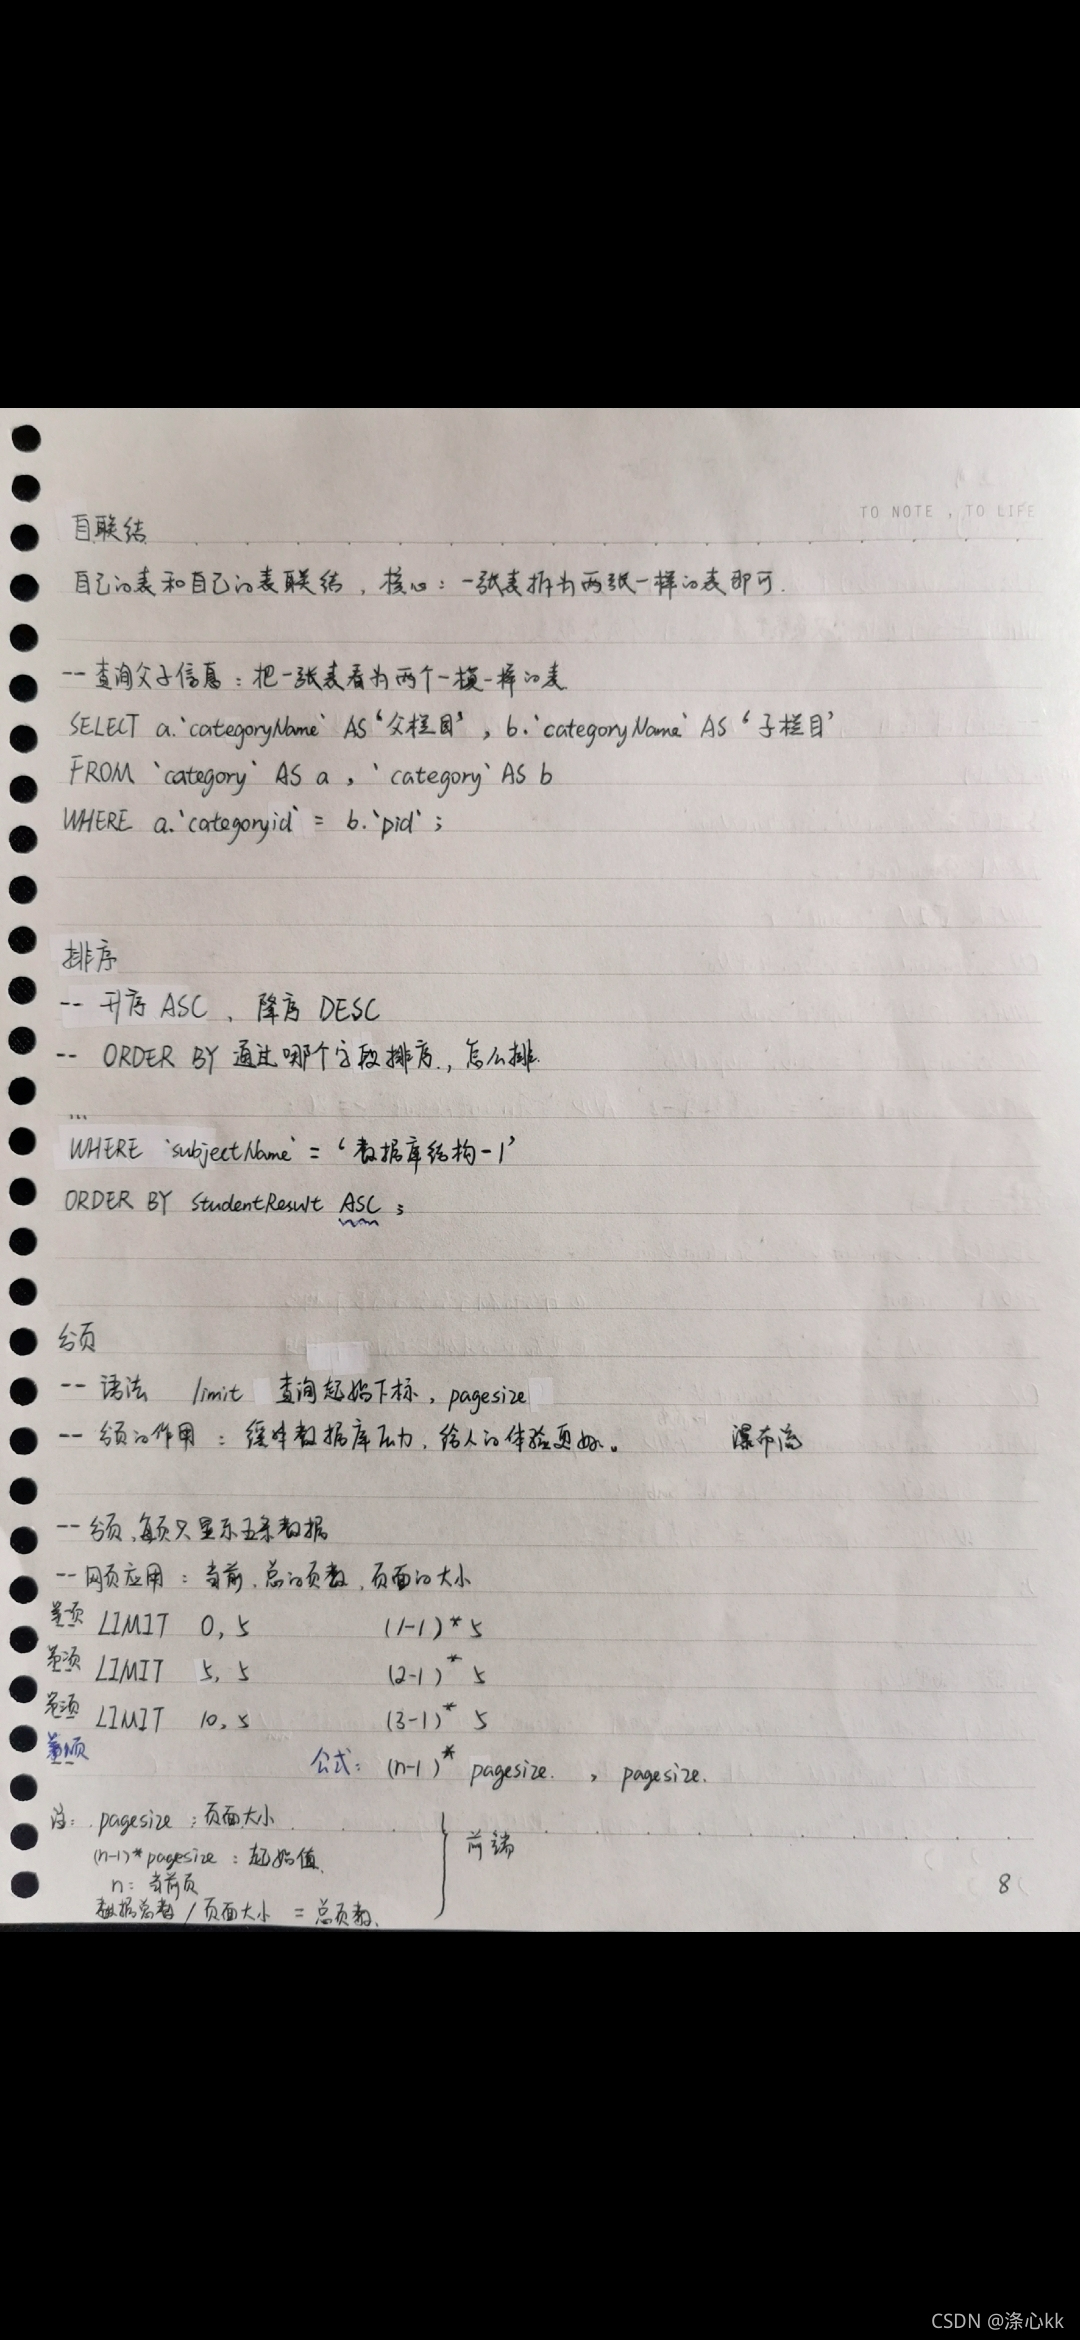 TO NOTE , TO LIFE
自联结
自己的表和自己的表联结，核心：一张表拆为两张一样的表即可.
-- 查询父子信息：把一张表看为两个一模一样的表
SELECT a.`categoryName` AS '父栏目' , b.`categoryName` AS '子栏目'
FROM `category` AS a , `category` AS b
WHERE a.`categoryid` = b.`pid` ;
排序
-- 升序 ASC 、降序 DESC
-- ORDER BY 通过哪个字段排序.，怎么排.
...
WHERE `subjectName` = '数据库结构-1'
ORDER BY StudentResult ASC ;
分页
-- 语法 limit 查询起始下标，pagesize
-- 分页的作用：缓冲数据库压力，给人的体验更好。 瀑布流
-- 分页，每页只显示五条数据
-- 网页应用：当前，总的页数，页面的大小
第一页 LIMIT 0, 5 (1-1) * 5
第二页 LIMIT 5, 5 (2-1) * 5
第三页 LIMIT 10, 5 (3-1) * 5
第n页 公式: (n-1) * pagesize. , pagesize.
注: pagesize : 页面大小
(n-1) * pagesize : 起始值
n: 当前页
数据总数 / 页面大小 = 总页数.
前端
8
CSDN @涤心kk